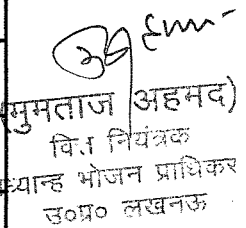 (मुमताज अहमद)
वित्त नियंत्रक
मध्यान्ह भोजन प्राधिकर
उ०प्र० लखनऊ